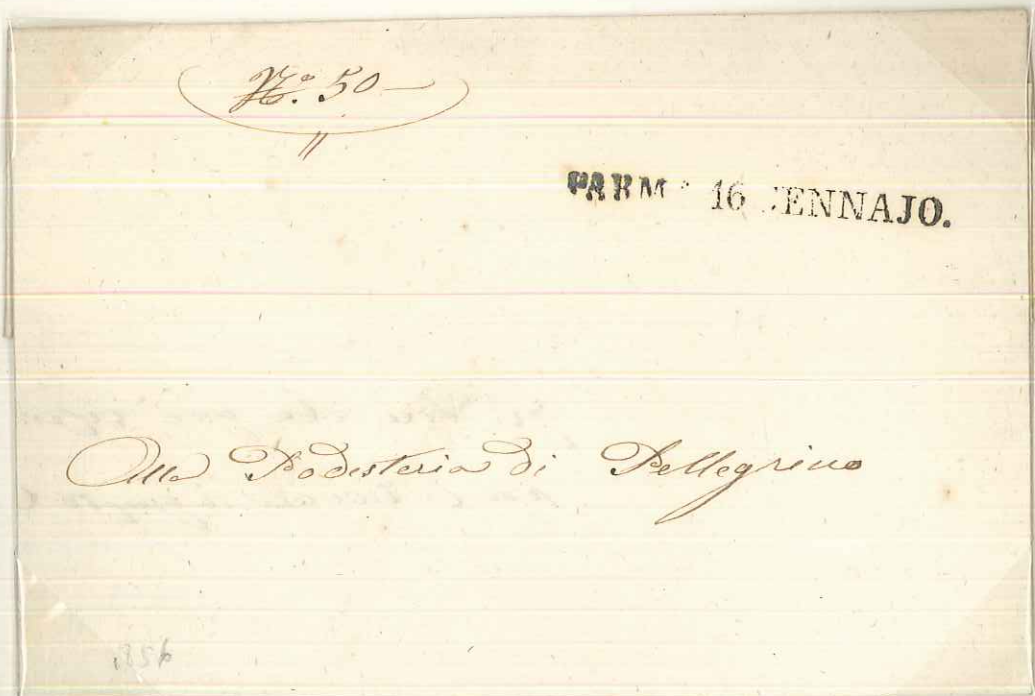 No. 50 —
PARMA 16 GENNAJO.
Alla Podesteria di Pellegrino